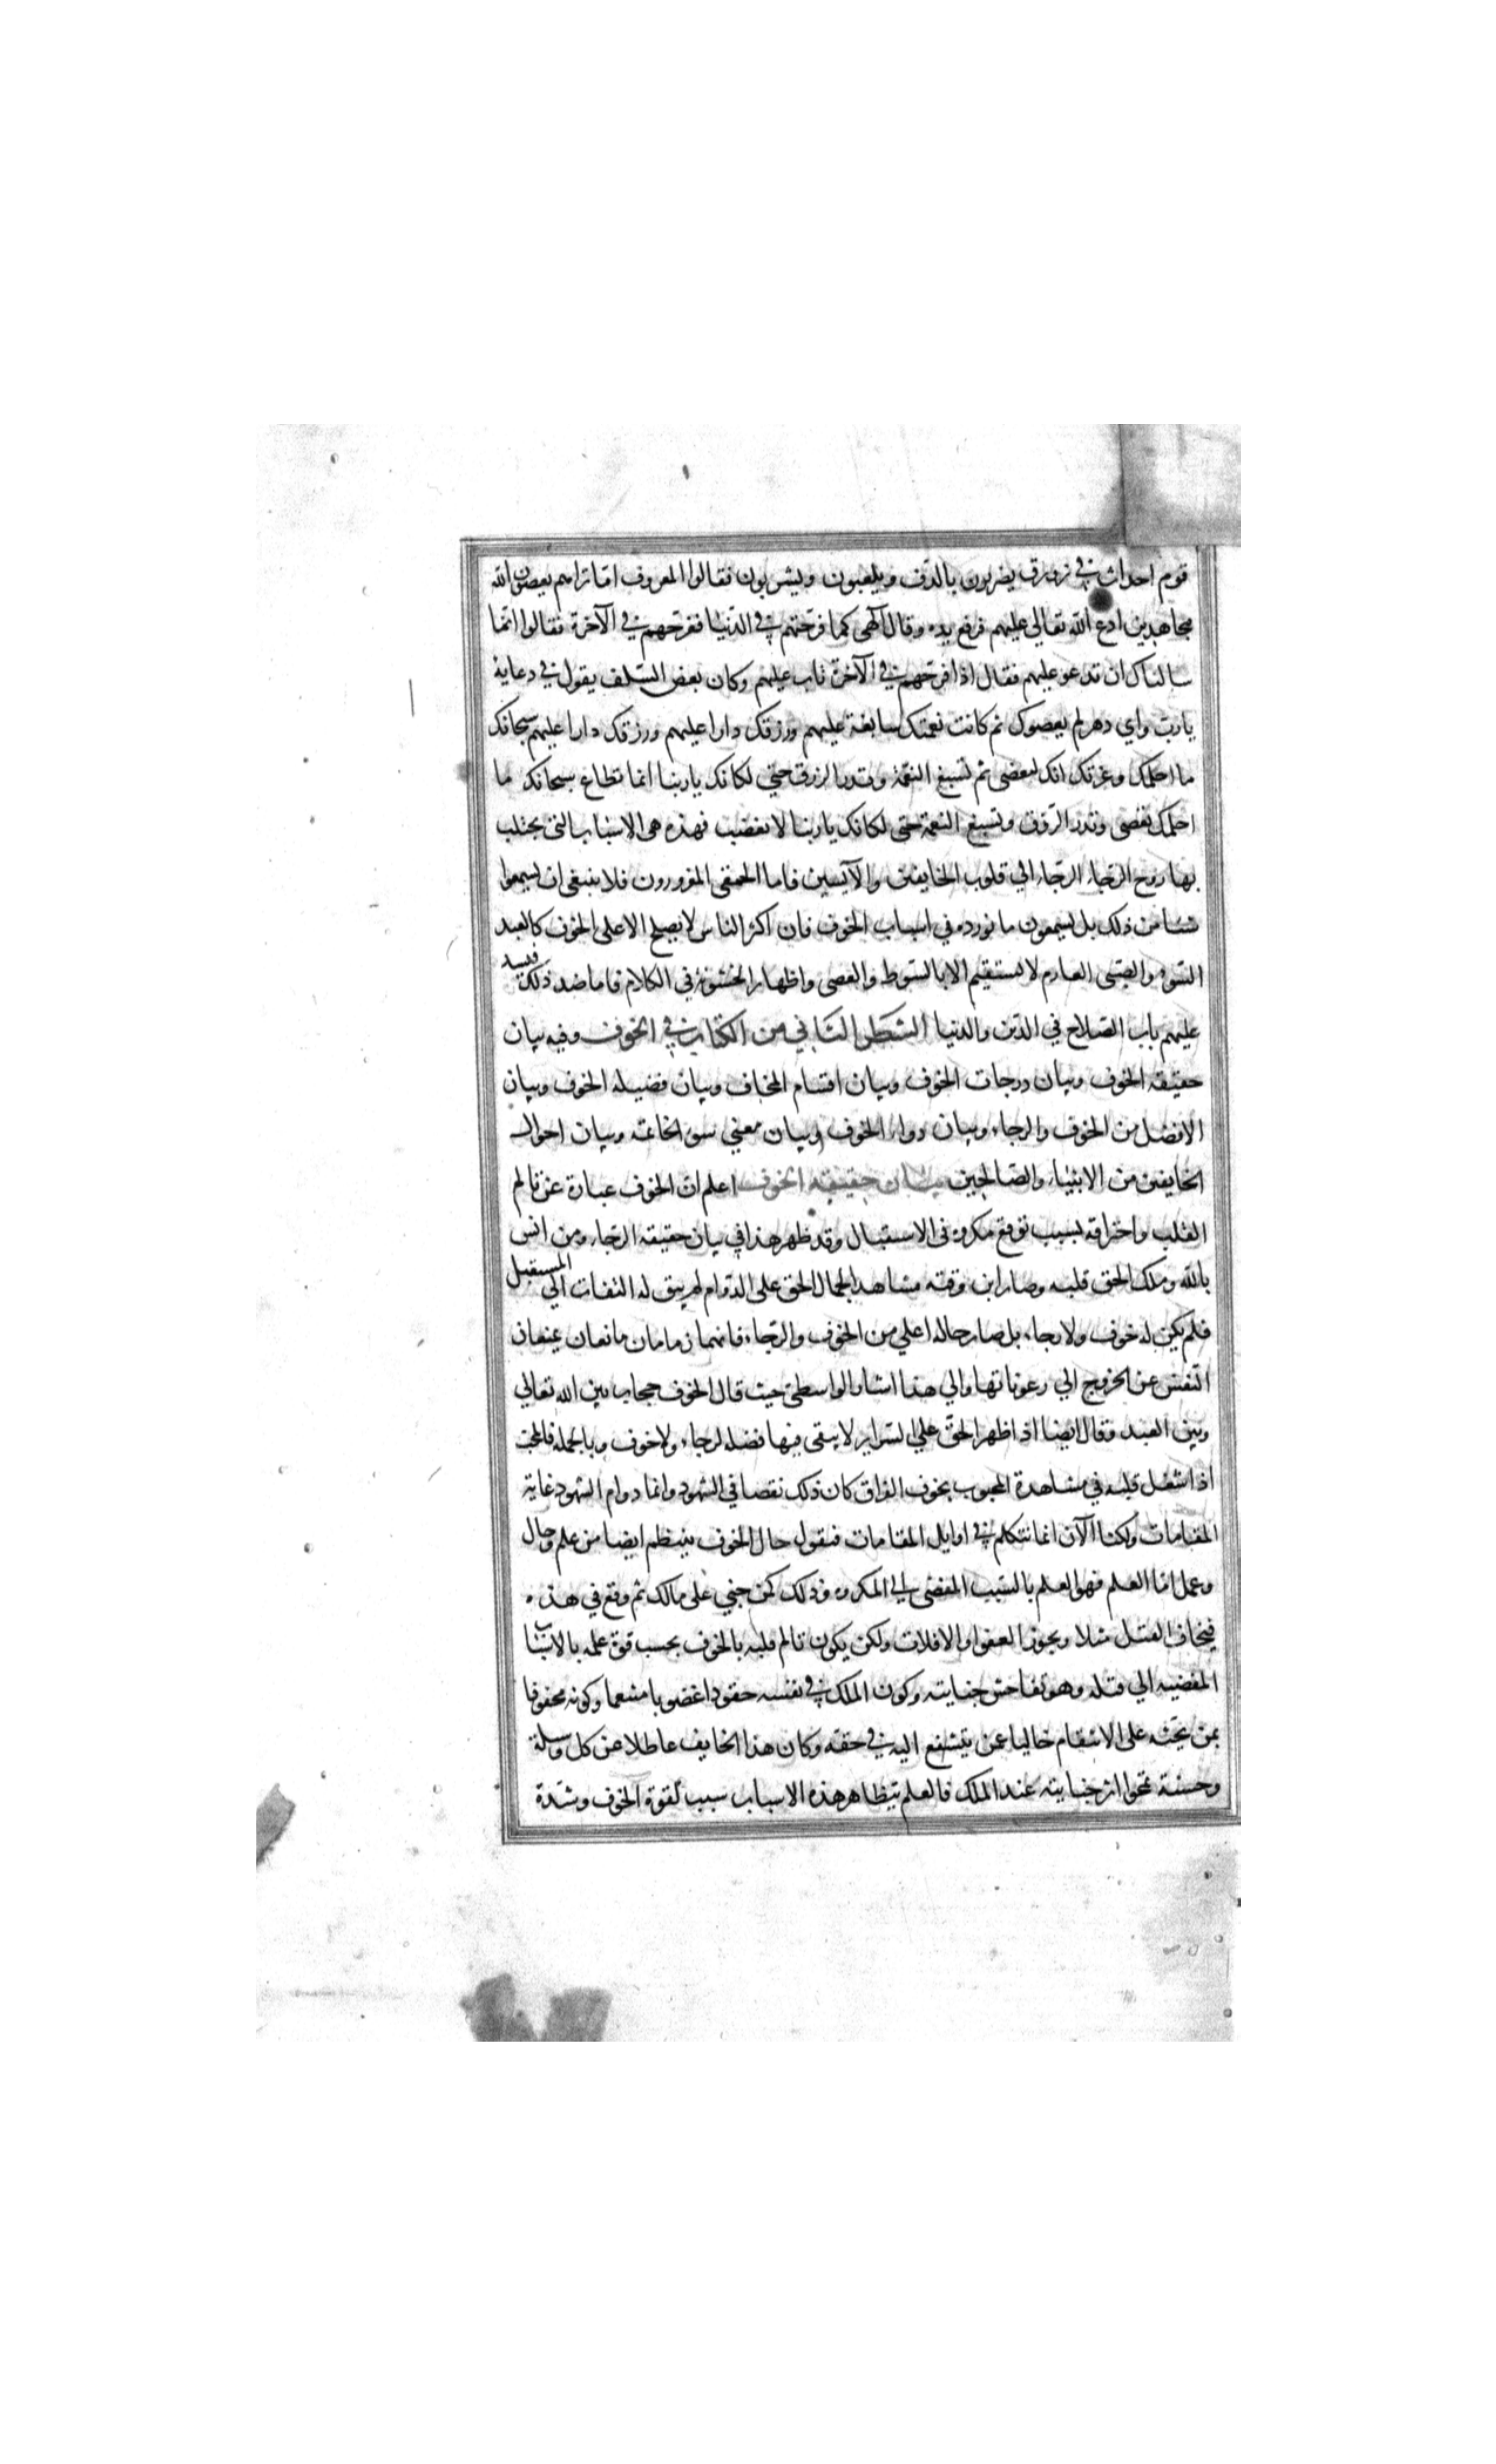 قوم احداث في زورق يضربون بالدف ويلعبون ويشربون فقالوا لمعروف اما تراهم يعصون الله
مجاهدين ادع الله تعالي عليهم فرفع يده وقال الهي كما فرحتهم في الدنيا ففرحهم في الآخرة فقالوا انما
سالناك ان تدعو عليهم فقال اذا فرحهم في الآخرة تاب عليهم وكان بعض السلف يقول في دعايه
يارب واي دهر لم يعصوك ثم كانت نعمتك سابغة عليهم ورزقك دارا عليهم ورزقك دارا عليهم سبحانك
ما احلمك وعزتك انك لتعصى ثم تسبغ النعمة وتدر الرزق حتي لكانك يا ربنا انما تطاع سبحانك ما
احلمك تعصى وتدر الرزق وتسبغ النعمة حتى لكانك يا ربنا لا تغضب فهذه هي الاسباب التي يجتلب
بها روح الرجاء الرجاء الي قلوب الخايفين والآيسين فاما الحمقى المغرورون فلا ينبغي ان يسمعوا
شيئا من ذلك بل يسمعون ما نورده في اسباب الخوف فان اكثر الناس لا يصلح الا على الخوف كالعبد
السوء والصبى العارم لا يستقيم الا بالسوط والعصى واظهار الخشونة في الكلام فاما ضد ذلك فيسد
عليهم باب الصلاح في الدين والدنيا الشطر الثاني من الكتاب في الخوف وفيه بيان
حقيقة الخوف وبيان درجات الخوف وبيان اقسام المخاف وبيان فضيلة الخوف وبيان
الافضل من الخوف والرجاء وبيان دواء الخوف وبيان معني سوء الخاتمة وبيان احوال
الخايفين من الانبياء والصالحين بيان حقيقة الخوف اعلم ان الخوف عبارة عن تالم
القلب واحتراقه بسبب توقع مكروه في الاستقبال وقد ظهر هذا في بيان حقيقة الرجاء ومن انس
بالله وملك الحق قلبه وصار ابن وقته مشاهدا لجمال الحق على الدوام لم يبق له التفات الي المستقبل
فلم يكن له خوف ولا رجاء بل صار حاله اعلي من الخوف والرجاء فانهما زمامان مانعان يمنعان
النفس عن الخروج الي رعوناتها والي هذا اشار الواسطى حيث قال الخوف حجاب بين الله تعالي
وبين العبد وقال ايضا اذا ظهر الحق علي السراير لا يبقى فيها فضلة لرجاء ولا خوف وبالجملة فالمحب
اذا شغل قلبه في مشاهدة المحبوب بخوف الفراق كان ذلك نقصا في الشهود وانما دوام الشهود غاية
المقامات ولكنا الآن انما نتكلم في اوايل المقامات فنقول حال الخوف ينتظم ايضا من علم وحال
وعمل اما العلم فهو العلم بالسبب المفضى الي المكروه وذلك كمن جني على مالك ثم وقع في هذه
فيخاف القتل مثلا ويجوز العفو او الافلات ولكن يكون تالم قلبه بالخوف بحسب قوة علمه بالاسباب
المفضية الي قتله وهو تفاحش جنايته وكون الملك في نفسه حقودا غضوبا منتقما وكونه محفوفا
بمن يحثه على الانتقام خاليا عمن يتشفع اليه في حقه وكان هذا الخايف عاطلا عن كل وسيلة
وحسنة تمحوا اثر جنايته عند الملك فالعلم بتظاهر هذه الاسباب سبب لقوة الخوف وشدة